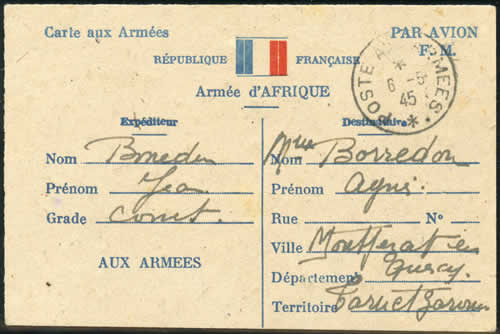 Carte aux Armées
PAR AVION
F. M.
RÉPUBLIQUE FRANÇAISE
Armée d'AFRIQUE
POSTE AUX ARMEES
6 -5
45
Expéditeur
Nom
Prénom
Grade
AUX ARMEES
Destinataire
Nom Borredon
Prénom Agnès
Rue N°
Ville Montferrat en
Département Quercy
Territoire Tarn et Garonne